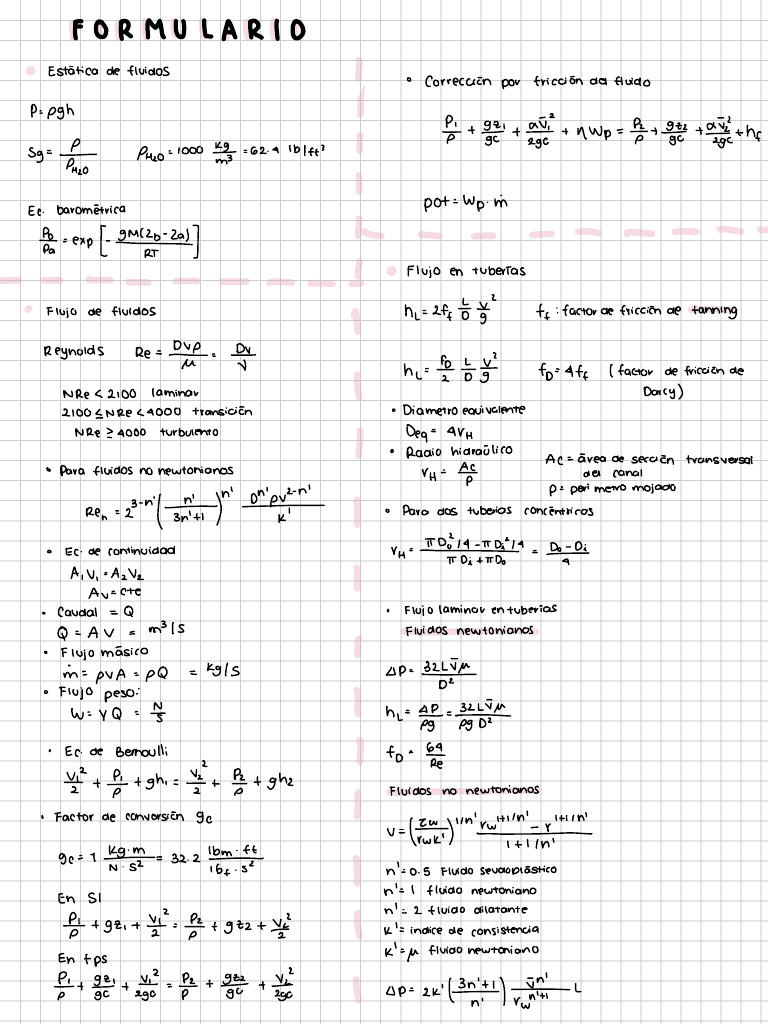 FORMULARIO
Estática de fluidos
P= ρgh
Sg= ρ/ρH2O   ρH2O = 1000 kg/m³ = 62.4 lb/ft³
Ec. barométrica
Pb/Pa = exp [- gM(zb - za)/RT]
Flujo de fluidos
Reynolds   Re = Dvρ/μ = Dv/ν
NRe < 2100 laminar
2100 ≤ NRe < 4000 transición
NRe ≥ 4000 turbulento
• Para fluidos no newtonianos
Reₙ = 2^(3-n') (n'/(3n'+1))^n' D^n' ρv^(2-n')/K'
• Ec. de continuidad
A₁V₁ = A₂V₂
Av = cte
• Caudal = Q
Q = A V = m³/s
• Flujo másico
ṁ = ρvA = ρQ = kg/s
• Flujo peso:
W = γQ = N/s
• Ec. de Bernoulli
V₁²/2 + P₁/ρ + gh₁ = V₂²/2 + P₂/ρ + gh2
• Factor de conversión gc
gc = 1 Kg·m/N·s² = 32.2 lbm·ft/lbf·s²
En SI
P₁/ρ + gz₁ + V₁²/2 = P₂/ρ + gz2 + V₂²/2
En fps
P₁/ρ + gz₁/gc + V₁²/2gc = P₂/ρ + gz2/gc + V₂²/2gc
• Corrección por fricción del fluido
P₁/ρ + gz₁/gc + αv̄₁²/2gc + ηWp = P₂/ρ + gz2/gc + αv̄₂²/2gc + hf
pot = Wp · ṁ
Flujo en tuberías
hL = 2ff L/D V²/g   ff : factor de fricción de tanning
hL = fD/2 L/D V²/g   fD = 4ff (factor de fricción de
Darcy)
• Diametro equivalente
Deq = 4rH
• Radio hidraúlico
rH = Ac/P
Ac = área de sección transversal
del canal
p = perimetro mojado
• Para dos tuberias concéntricos
rH = (πDo²/4 - πDi²/4)/(πDi + πDo) = (Do - Di)/4
• Flujo laminar en tuberías
Fluidos newtonianos
ΔP = 32Lv̄μ/D²
hL = ΔP/ρg = 32Lv̄μ/ρgD²
fD = 64/Re
Fluidos no newtonianos
V = (τw/rwK')^(1/n') (rw^(1+1/n') - r^(1+1/n'))/(1+1/n')
n' = 0.5 Fluido seudoplástico
n' = 1 fluido newtoniano
n' = 2 fluido dilatante
K' = indice de consistencia
K' = μ fluido newtoniano
ΔP = 2K' ((3n'+1)/n') v̄^n'/rw^(n'+1) L